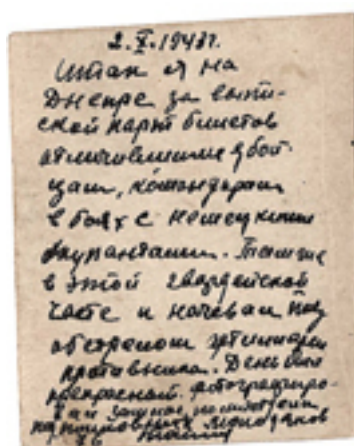 2.X.1943г.
Итак я на
Днепре за выпи-
ской парт билетов
отличившимся бой-
цам, командирам
в боях с немецкими
окупантами.
в этой гвардейской
части и ночевал под
обстрелом артиллерии
противника. День был
прекрасной. фотографиро-
вал